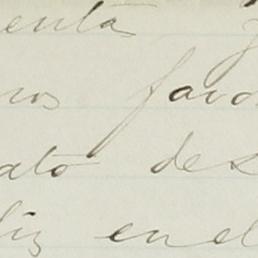 enta y
nos favo
ato des
liz en el